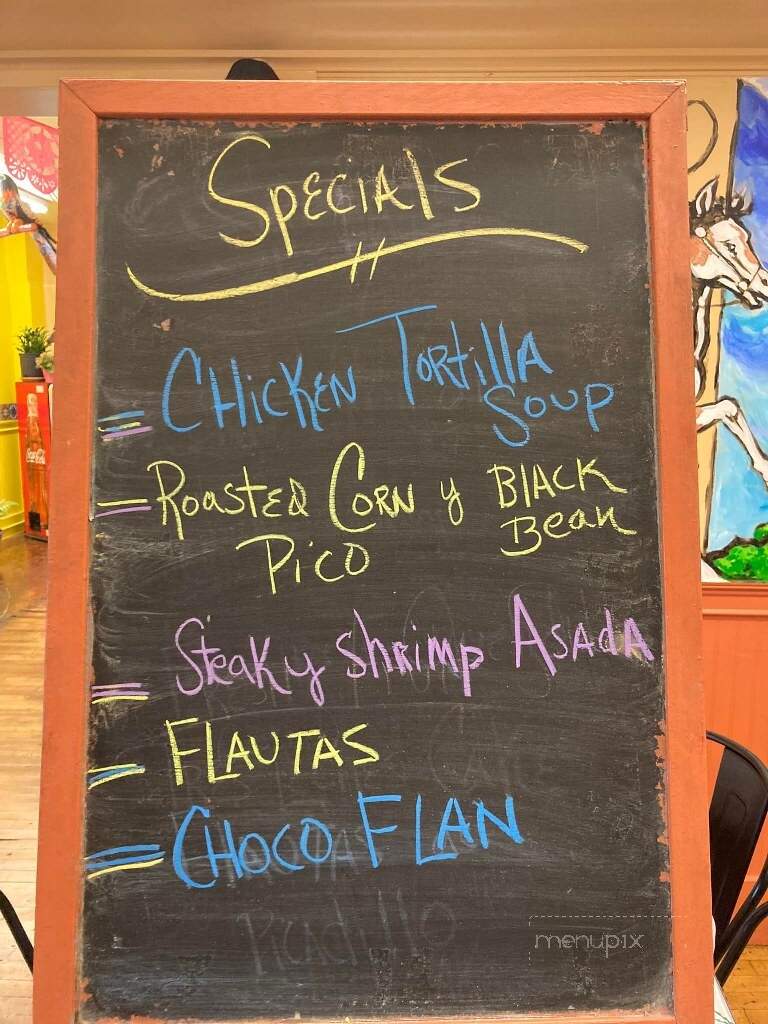 Specials
Chicken Tortilla
Soup
Roasted Corn y Black
Bean
Pico
Steak y Shrimp Asada
Flautas
Choco Flan
Picadillo
menupix
Coca-Cola